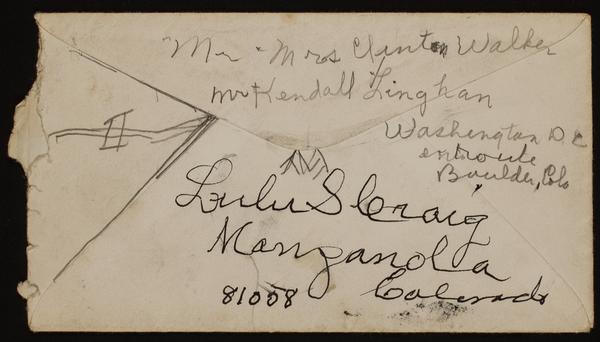 Mr Mrs Clinton Walker
Mr Kendall Linghan
Washington D C
entroute
Boulder, Colo
II
Lulu S Craig
Manzanola
Colorado
81058